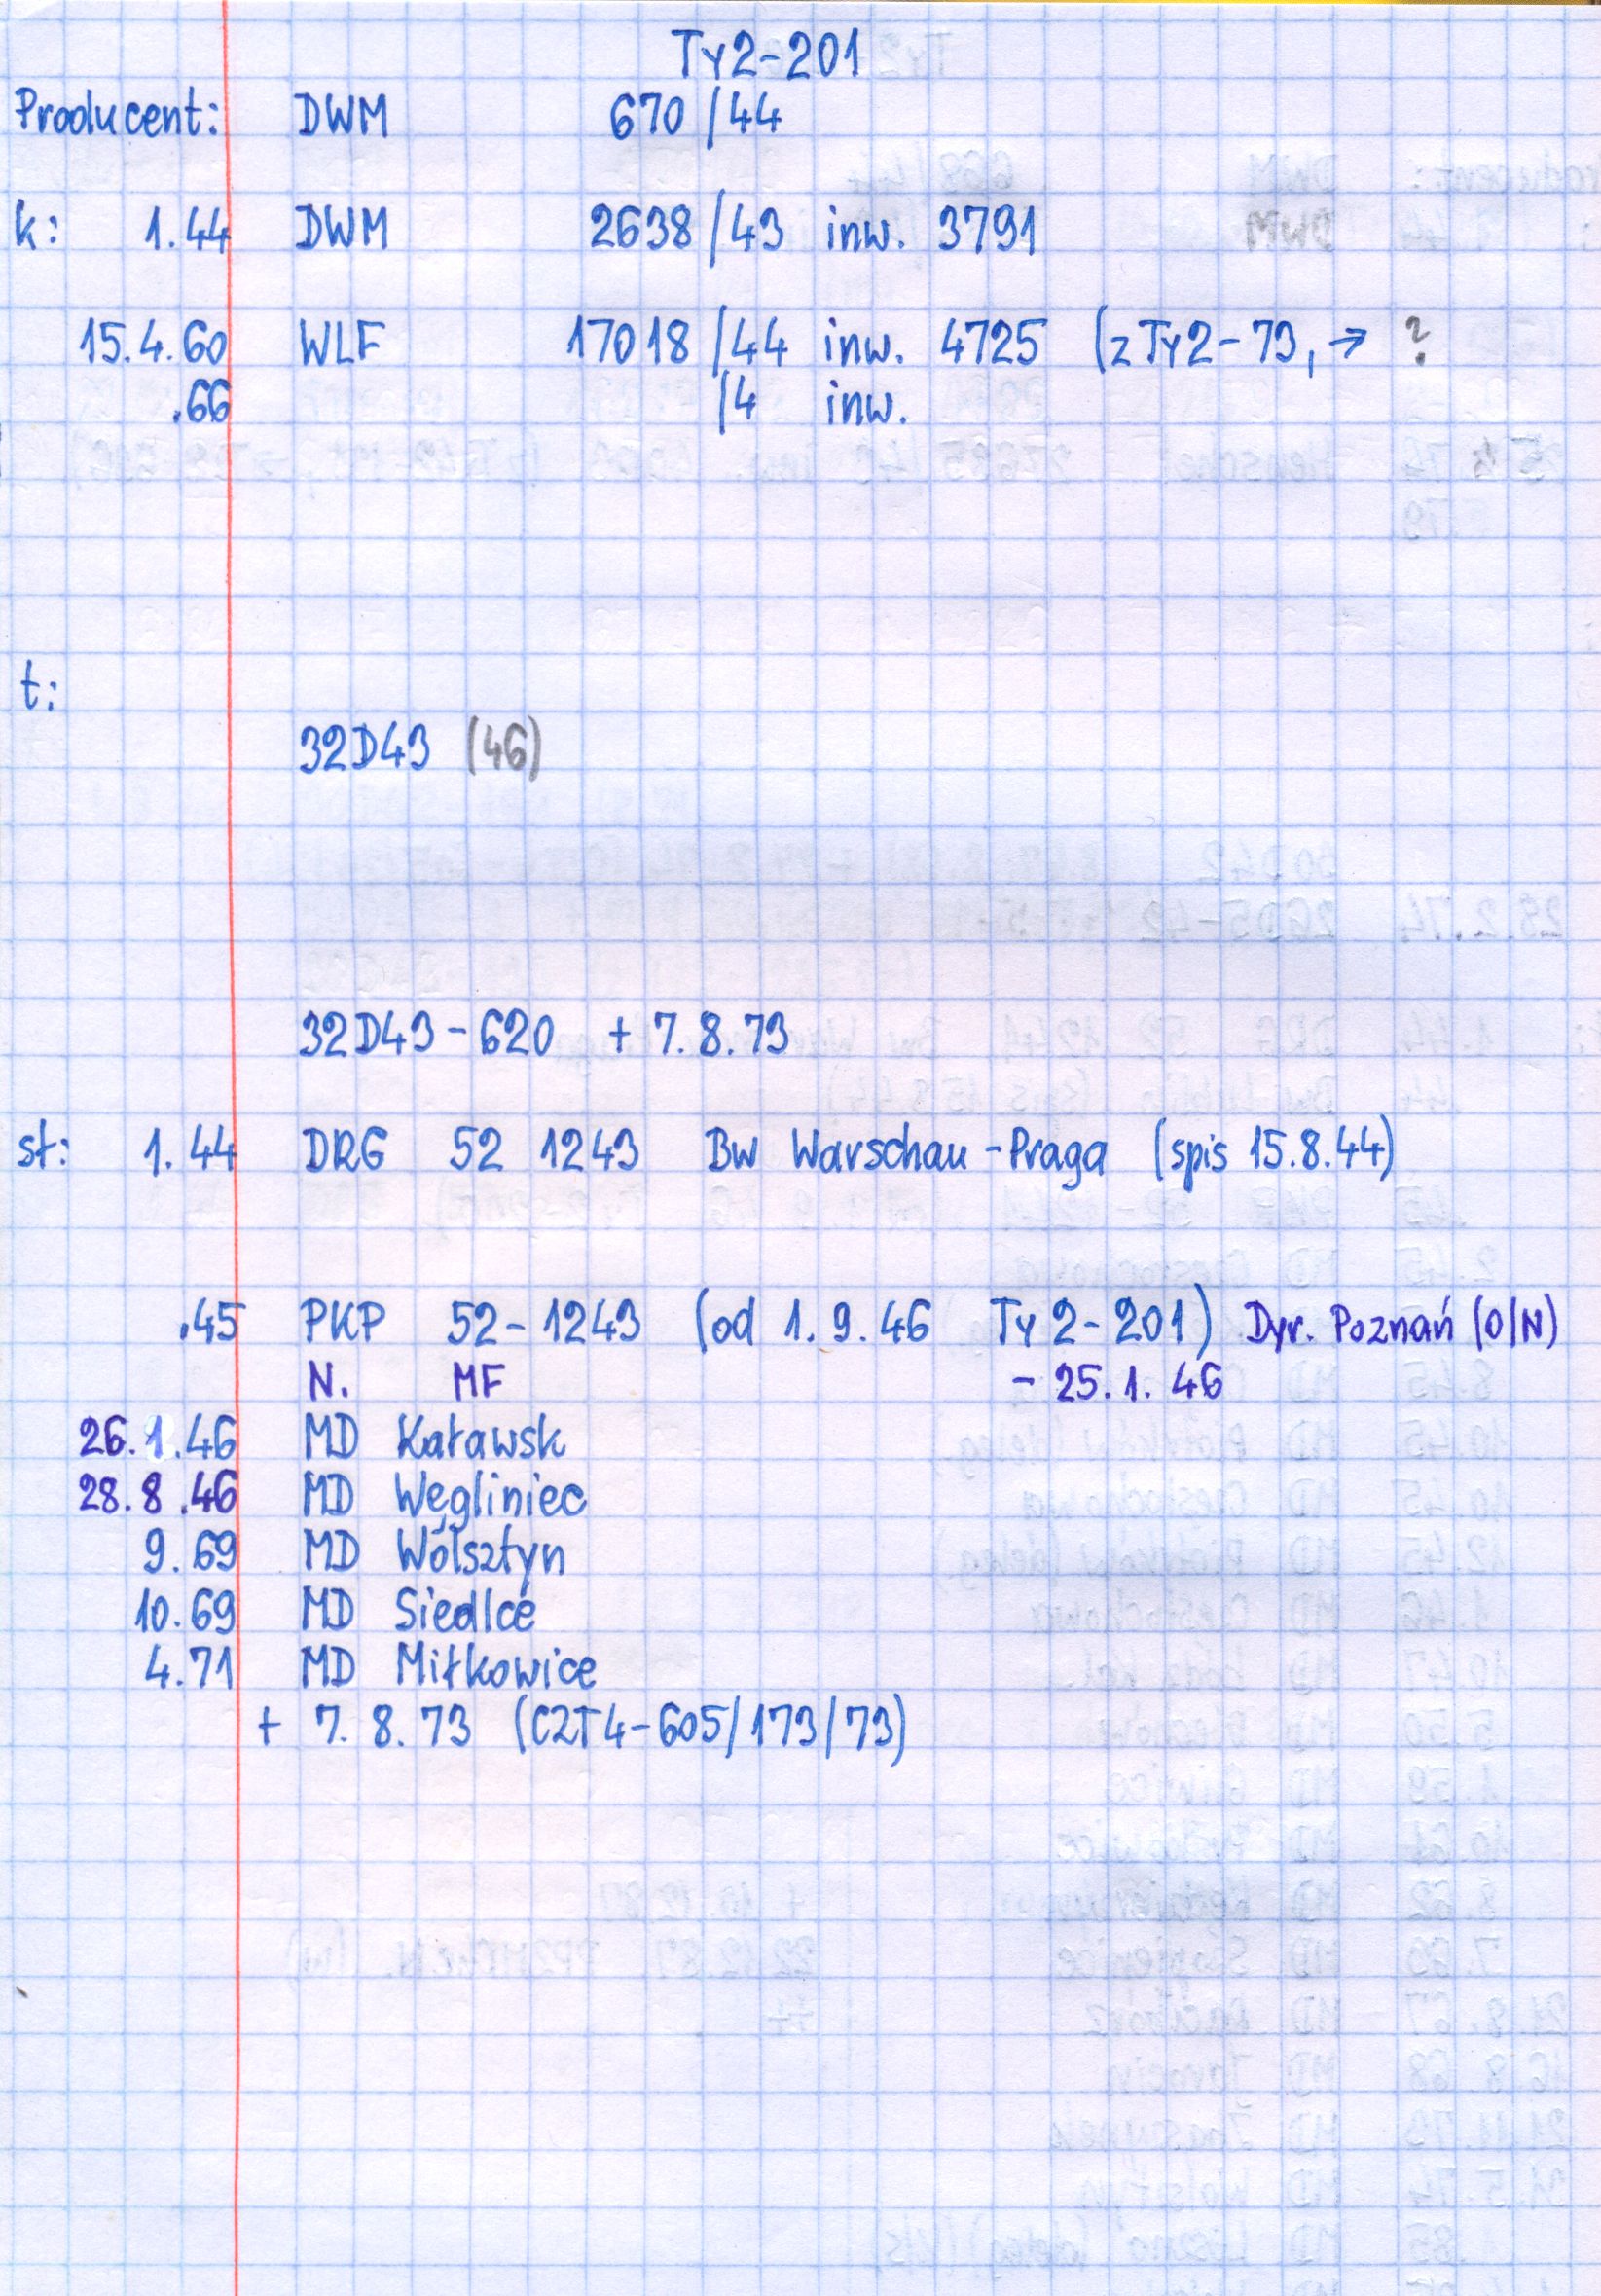 Ty2-201
Producent: DWM 670/44
k: 1.44 DWM 2638/43 inw. 3791
15.4.60 WLF 17018/44 inw. 4725 (z Ty2-73, → ?
.66 /4 inw.
t:
32D43 (46)
32D43-620 + 7.8.73
st: 1.44 DRG 52 1243 Bw Warschau-Praga (spis 15.8.44)
.45 PKP 52-1243 (od 1.9.46 Ty2-201) Dyr. Poznań (O/N)
N. MF - 25.1.46
26.1.46 MD Kaławsk
28.8.46 MD Węgliniec
9.69 MD Wolsztyn
10.69 MD Siedlce
4.71 MD Miłkowice
+ 7.8.73 (CZT4-605/173/73)